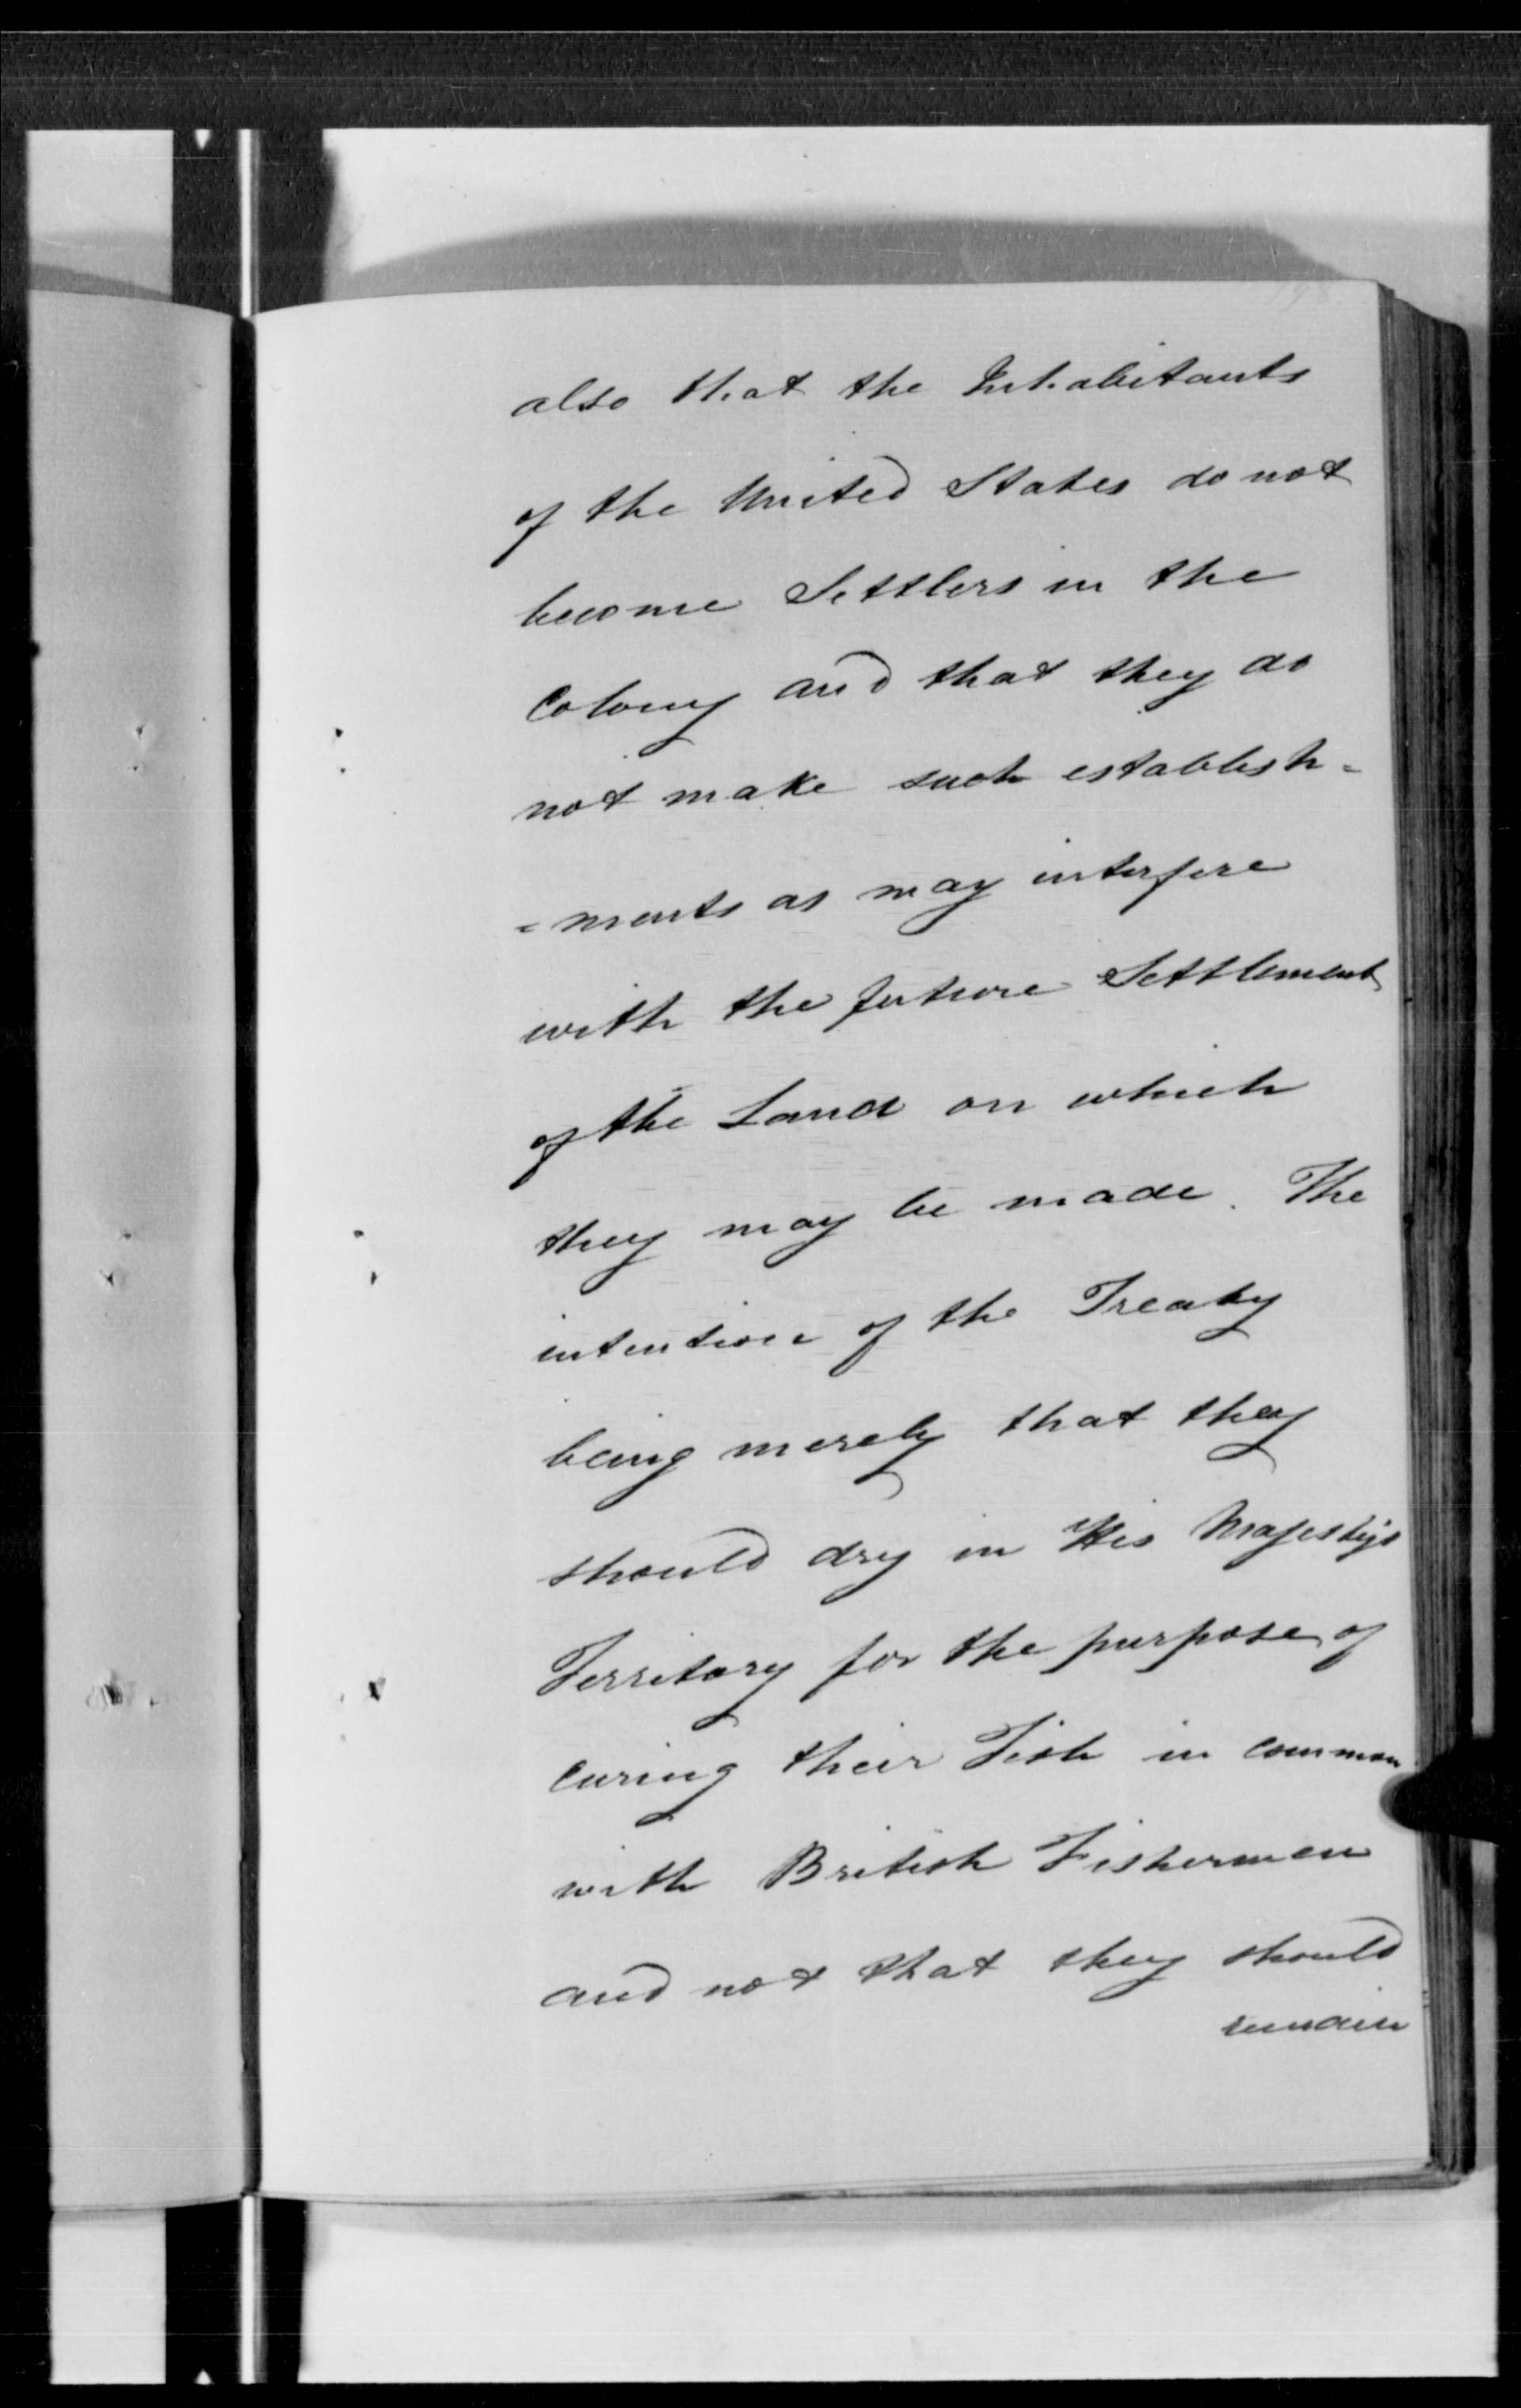 also that the Inhabitants
of the United States do not
become Settlers in the
Colony and that they do
not make such establish=
=ments as may interfere
with the future Settlement
of the Land on which
they may be made. The
intention of the Treaty
being merely that they
should dry in His Majesty's
Territory for the purpose of
curing their Fish in common
with British Fishermen
and not that they should
remain